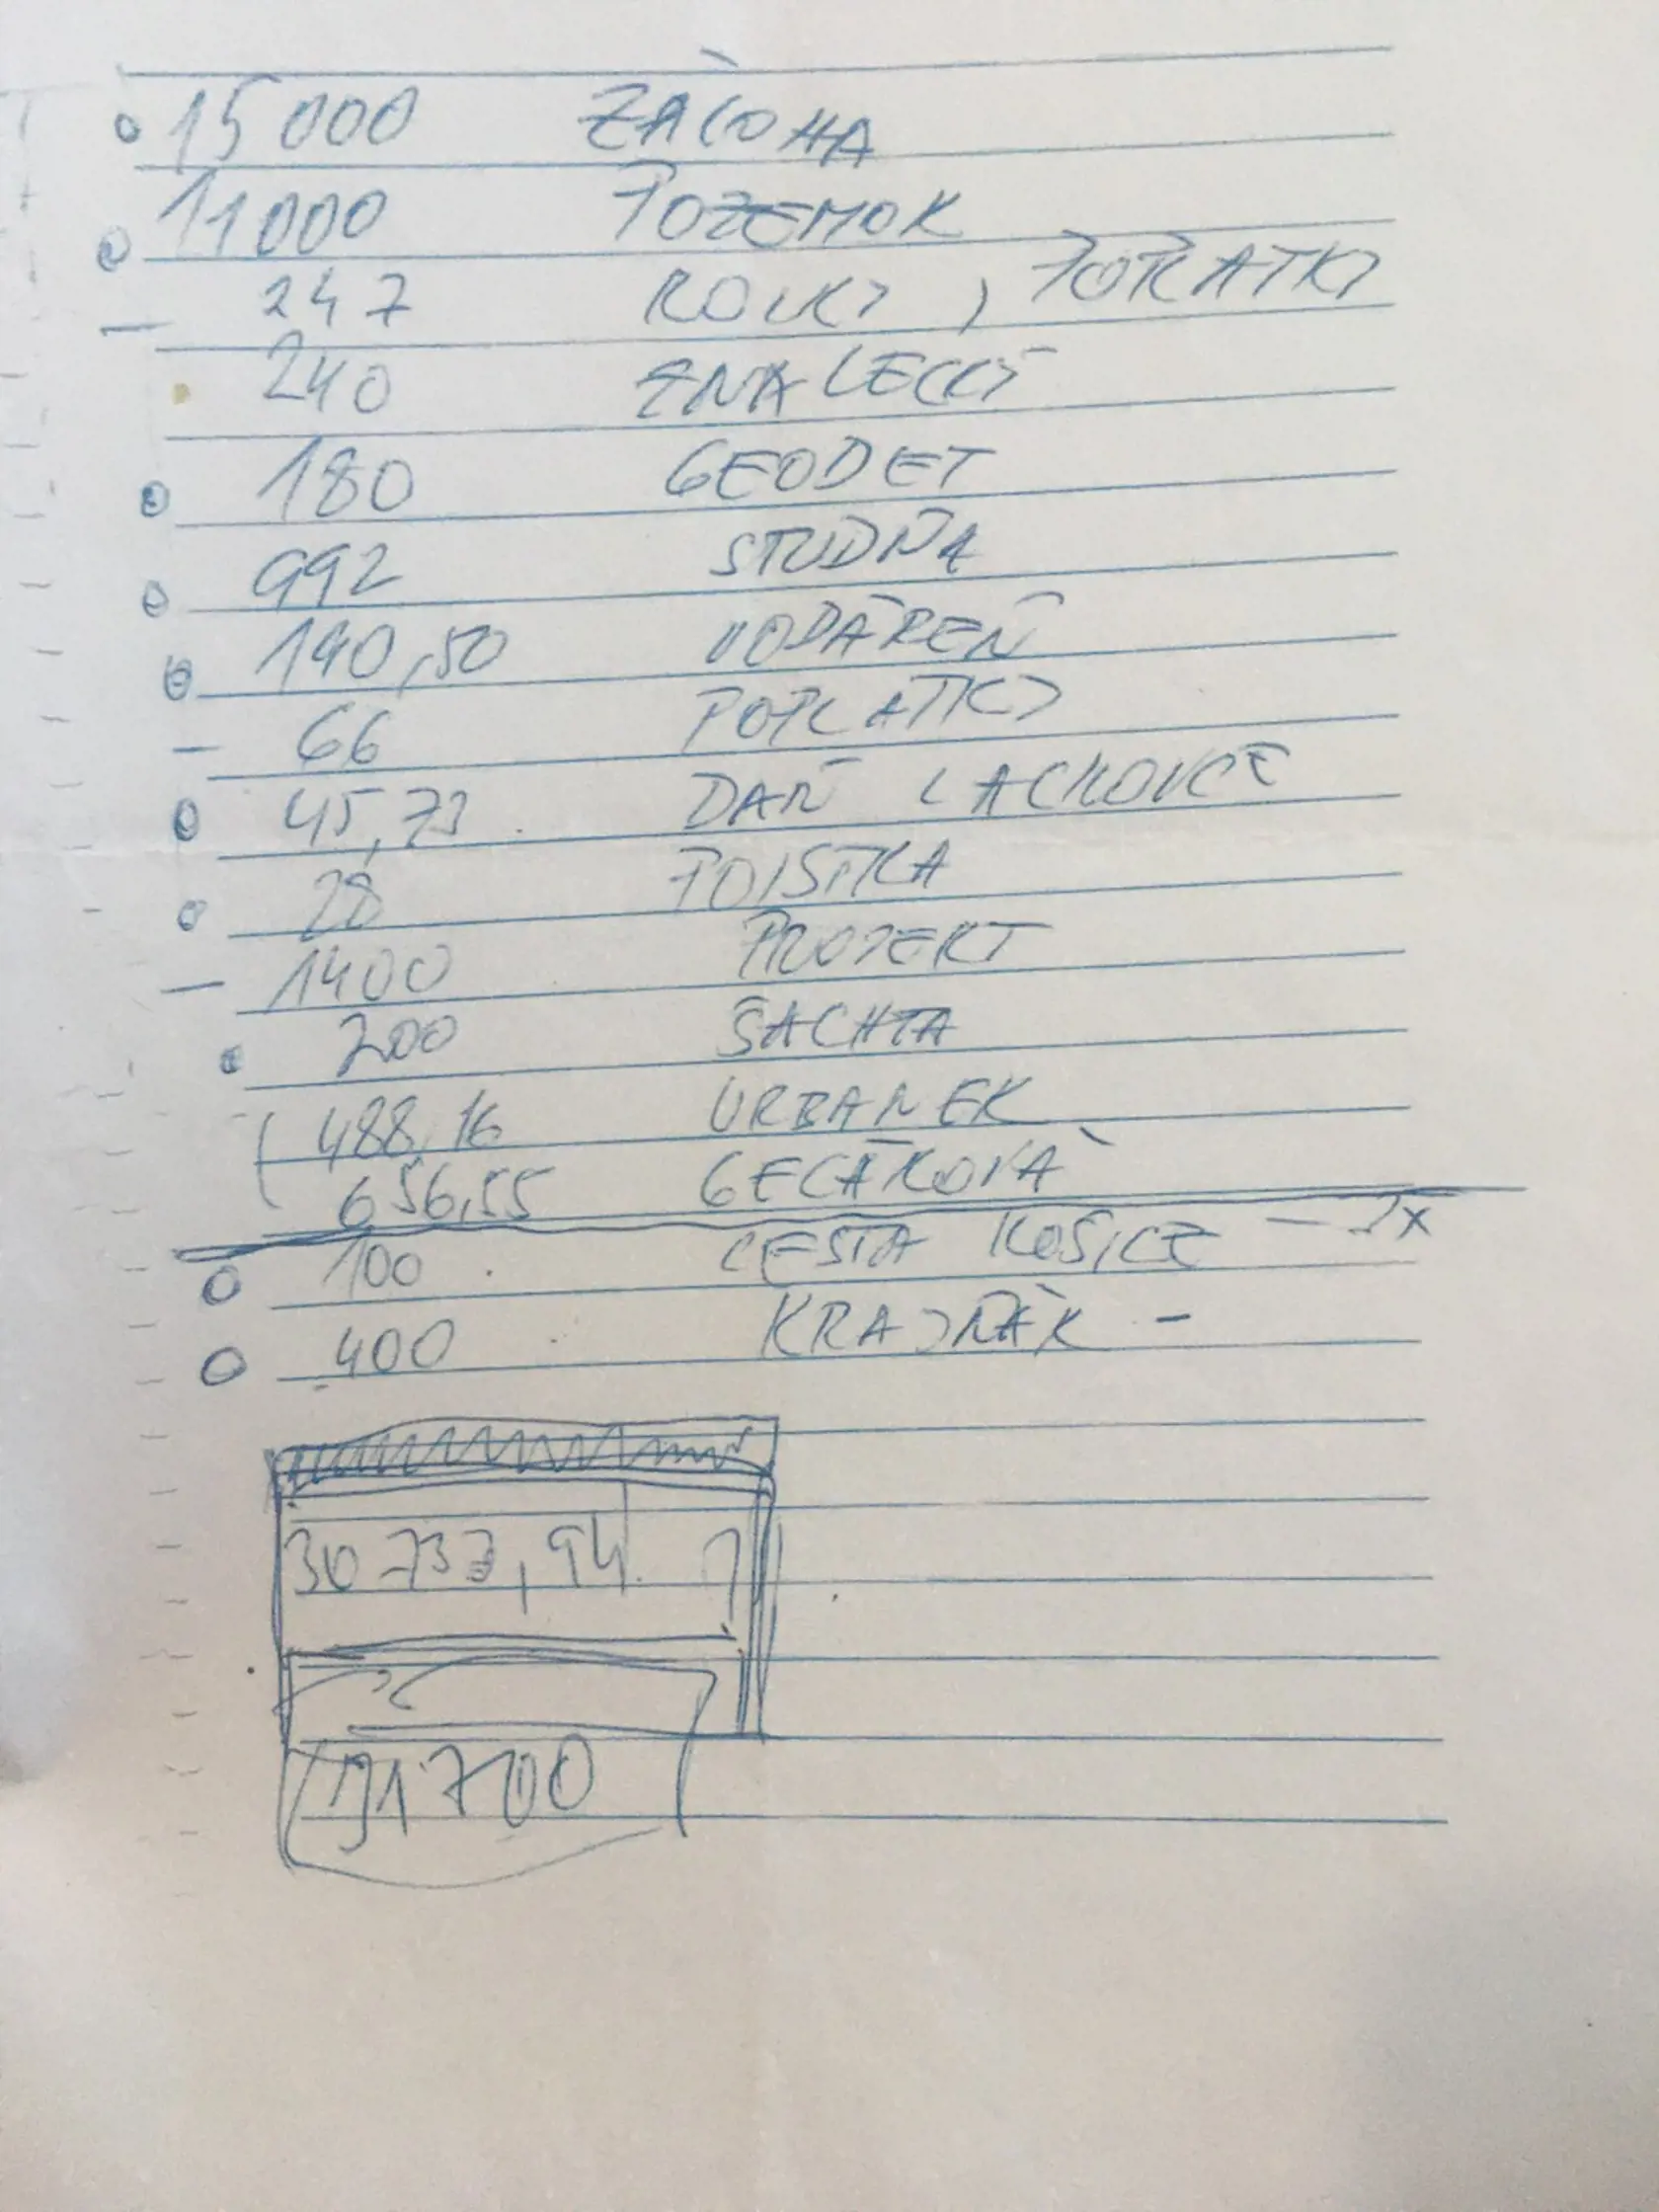 15 000 ZÁLOHA
11 000 POZEMOK
247 KOLKY, POPLATKY
240 ZNALECKÝ
180 GEODET
992 STUDŇA
190,50 VODÁREŇ
66 POPLATKY
45,73 DAŇ LACKOVCE
28 POISTKA
1400 PROJEKT
200 ŠACHTA
488,16 URBANEK
656,55 GECÁKOVÁ
100 CESTA KOŠICE - 2x
400 KRAJŇÁK -
30 733,94
31 700